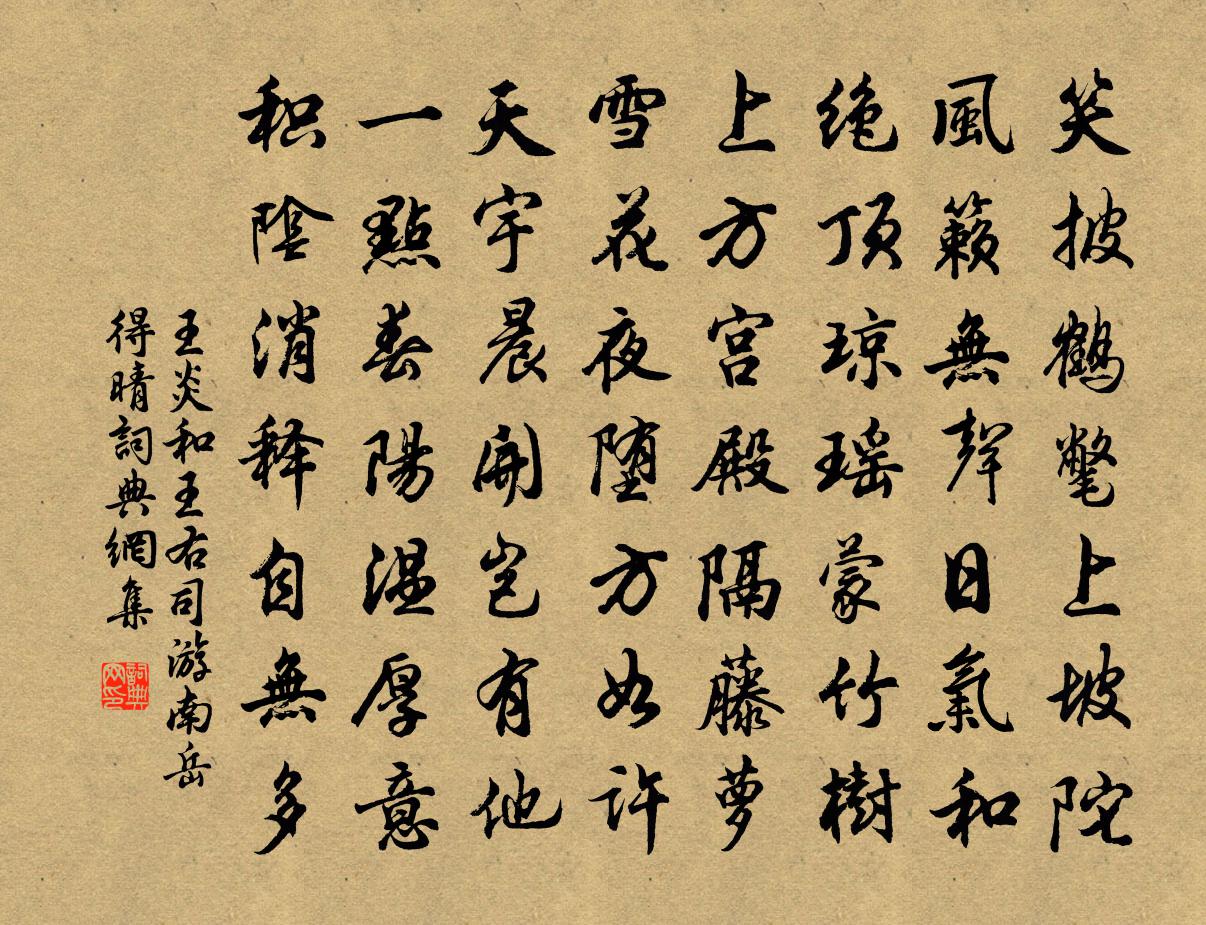 笑披鶴氅上坡陀
風籟無聲日氣和
绝顶琼瑶蒙竹樹
上方宫殿隔藤萝
雪花夜堕方如许
天宇晨開岂有他
一點春陽温厚意
积陰消释自無多
王炎和王右司游南岳
得晴詞典網集
詞典
网印